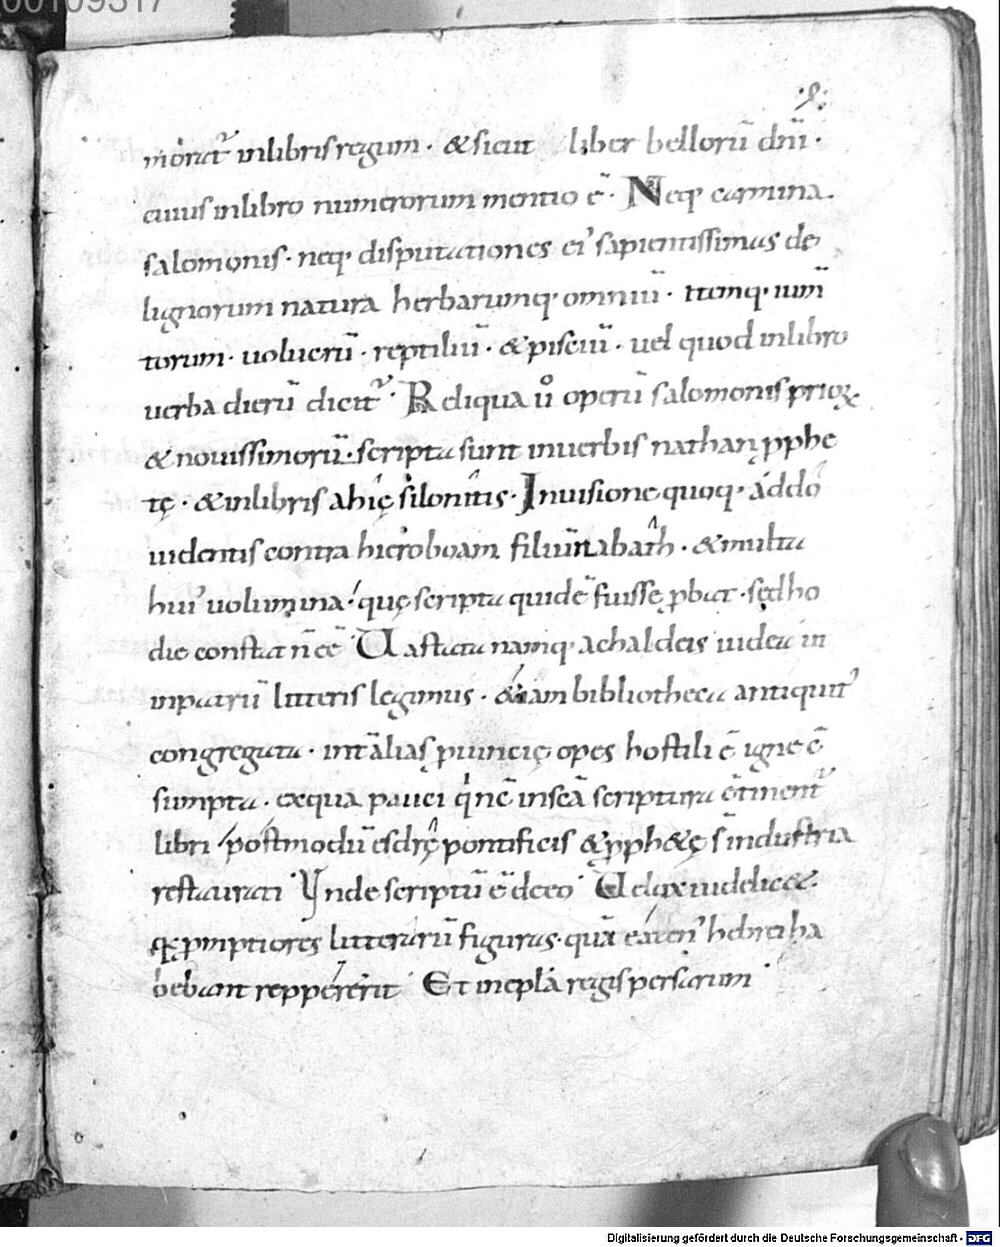 00109317
morat̄ inlibris regum · & sicut liber bellorū dn̄i ·
cuius inlibro numerorum mentio ē · Neq· carmina
salomonis · neq· disputationes ei' sapientissimas de
lignorum natura herbarumq· omniū · itemq· ium̄
torum · uolucrū · reptiliū · & pisciū · uel quod inlibro
uerba dierū dicit̄ Reliqua uº operū salomonis prioꝝ
& nouissimorū · scripta sunt inuerbis nathan ꝓphe
tę · & inlibris ahię silonitis · Inuisione quoq· addo
uidentis contra hieroboam filiū nabath · & multa
hui' uolumina · quę scripta quidē fuisse ꝓbat · sed ho
die constat n̄ eē Uastata namq· achaldeis iudea in
inpatrū litteris legimus · &iam bibliotheca antiquit'
congregata · int̄ alias ꝓuincię opes hostili ē igne c̄
sumpta · exqua pauci qⁱ nc̄ inscā scriptura c̄tinent̄
libri postmodū esdrę pontificis & ꝓph&ę s̄ industria
restaurati Unde scriptū ē deeo Uelox uidelic&
ꝓmptiores litterarū figuras · quā eaten' hebrei ha
bebant reppererit Et inepl̄a regis persarum
Digitalisierung gefördert durch die Deutsche Forschungsgemeinschaft - DFG